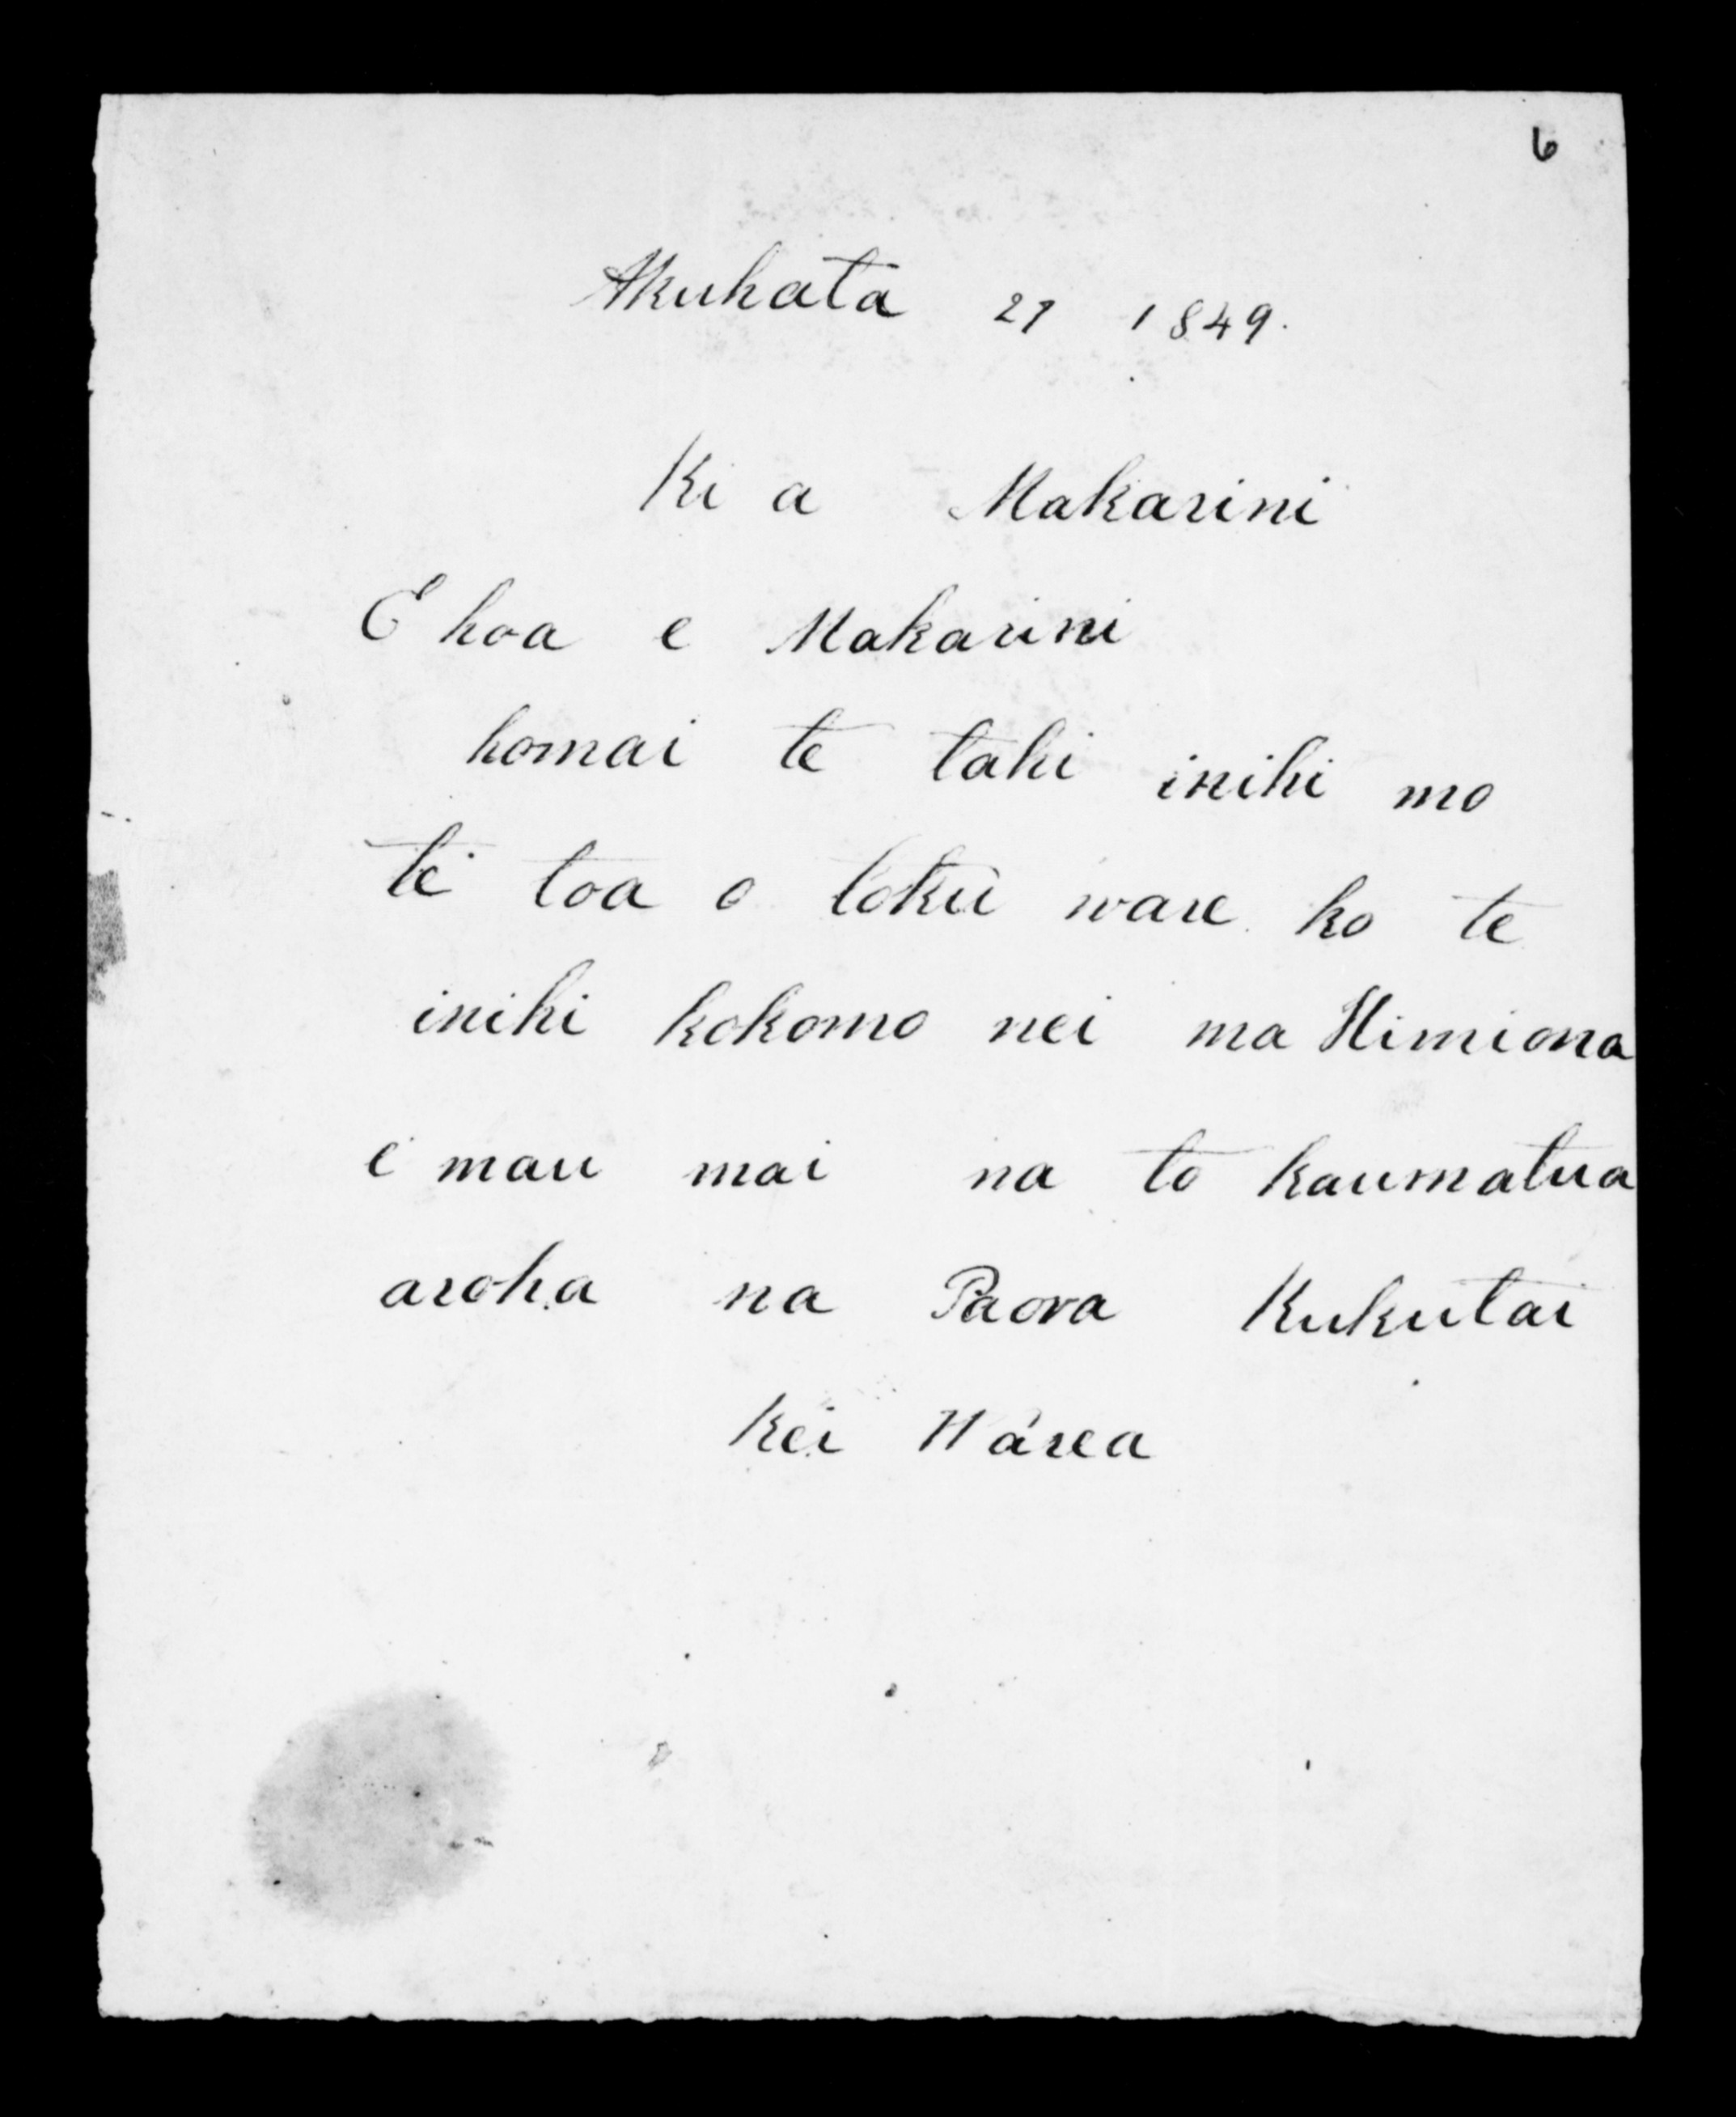 6
Akuhata 27 1849.
Ki a Makarini
E hoa e Makarini
homai te tahi inihi mo
te toa o toku ware ko te
inihi kokomo nei ma Himiona
e mau mai na to kaumatua
aroha na Paora Kukutai
Kei Harea